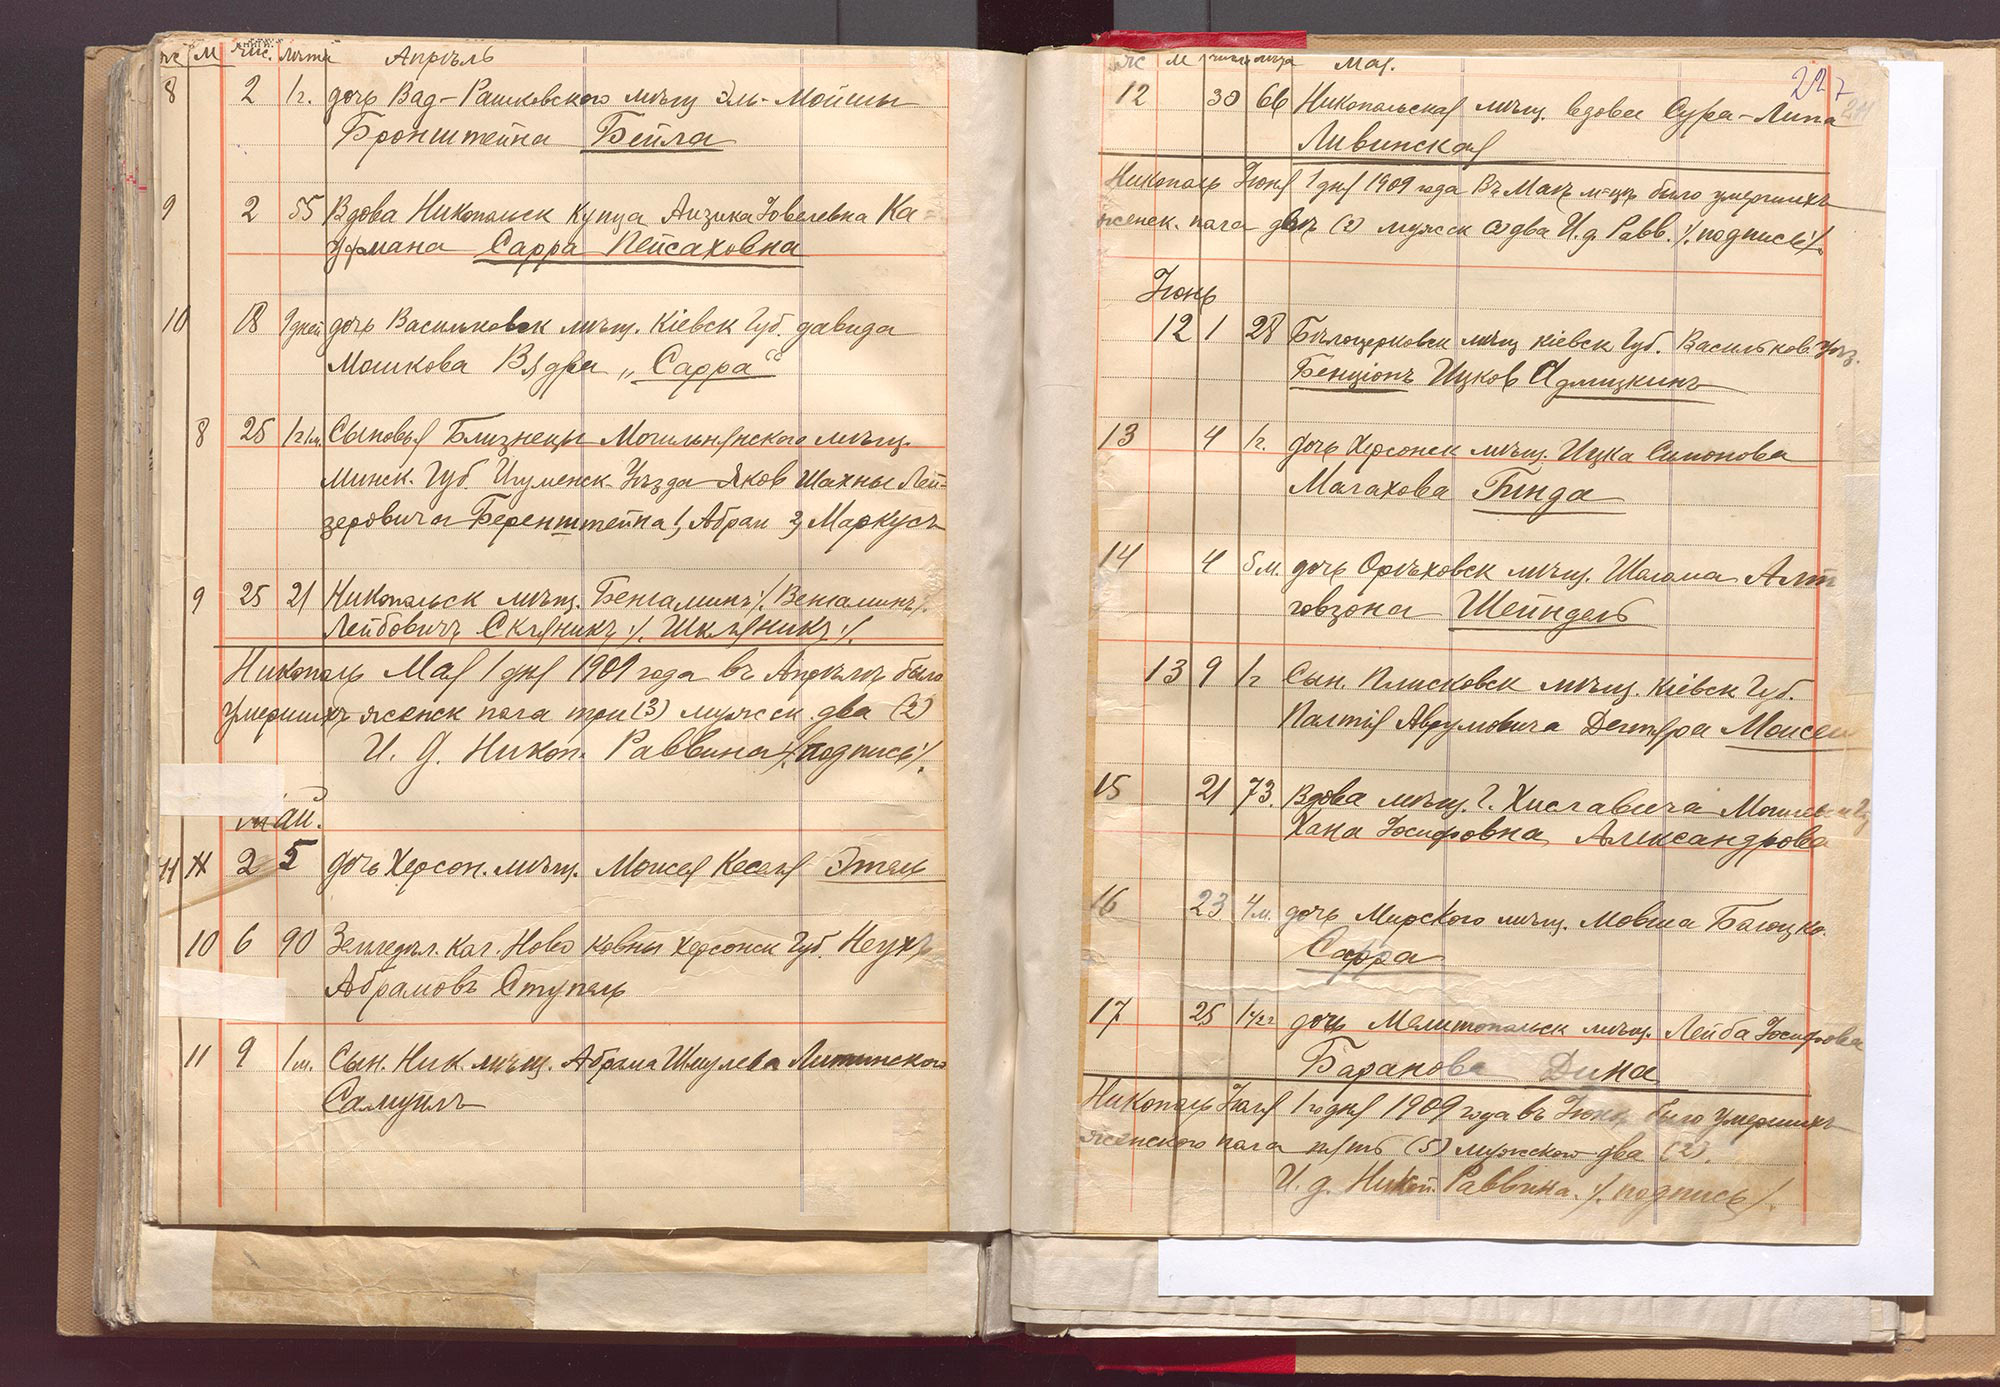 ж М чис. лѣта Апрѣль
8 2 1г. дочь Вад-Рашковского мѣщ Эль-Мойшы
Бронштейна Бейла
9 2 55 Вдова Никопольск купца Айзика Iовелевна Ка-
уфмана Сарра Пейсаховна
10 18 9дней дочь Васильковск мѣщ. Кiевск Губ. Давида
Мошкова Вядра „Сарра“
8 25 1г1м. Сыновья Близнецы Могильнянского мѣщ.
Минск. Губ. Игуменск Уѣзда Яков Шахны Лей-
зеровича Беренштейна 1, Абрам 2, Маркусъ
9 25 21 Никопольск мѣщ. Бенiаминъ /. Венiаминъ/.
Лейбовичъ Скляникъ ./. Шкляникъ ./.
Никополь Мая 1 дня 1909 года въ Апрѣлѣ было
умершихъ женск пола три (3) мужск. два (2)
И. д. Никоп. Раввина /. подпись /.
Май.
11 2 5 дочь Херсон. мѣщ. Моисея Кесел Этель
10 6 90 Земледѣл. кол. Ново Ковны Херсонск Губ. Неухъ
Абрамовъ Ступель
11 9 1м. Сын. Ник. мѣщ. Абрама Шмулева Литинского
Самуилъ
ж М числ лѣта Май. 227
12 30 66 Никопольская мѣщ. вдова Сура-Липа
Ливинская
Никополь Iюня 1 дня 1909 года Въ Маѣ м-цѣ было умершихъ
женск. пола двѣ (2) мужск (2) два И. д. Равв. /. подпись /.
Iюнь
12 1 28 Бѣлоцерковск мѣщ Кiевск Губ. Васильков Уѣз.
Бенцiонъ Ицков Адмицкинъ
13 4 1г. дочь Херсонск мѣщ. Ицка Симонова
Малахова Гинда
14 4 5м. дочь Орѣховск мѣщ. Шолома Альт
говзона Шейндель
13 9 1г Сын. Плисковск мѣщ. Кiевск Губ.
Палтiя Аврумовича Дехтяра Моисей
15 21 73. Вдова мѣщ. г. Хиславича Могилев
Хана Iосифовна Александрова
16 23 4м. дочь Мирского мѣщ. Мовша Багоцко.
Сарра
17 25 1 1/2 г дочь Мелитопольск мѣщ. Лейба Iосифова
Баранова Дина
Никополь Iюля 1 го дня 1909 года въ Iюнѣ было умершихъ
женского пола пять (5) мужского два (2).
И. д. Никоп. Раввина. /. подпись /.